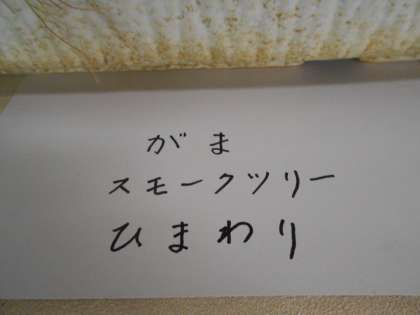 がま
スモークツリー
ひまわり